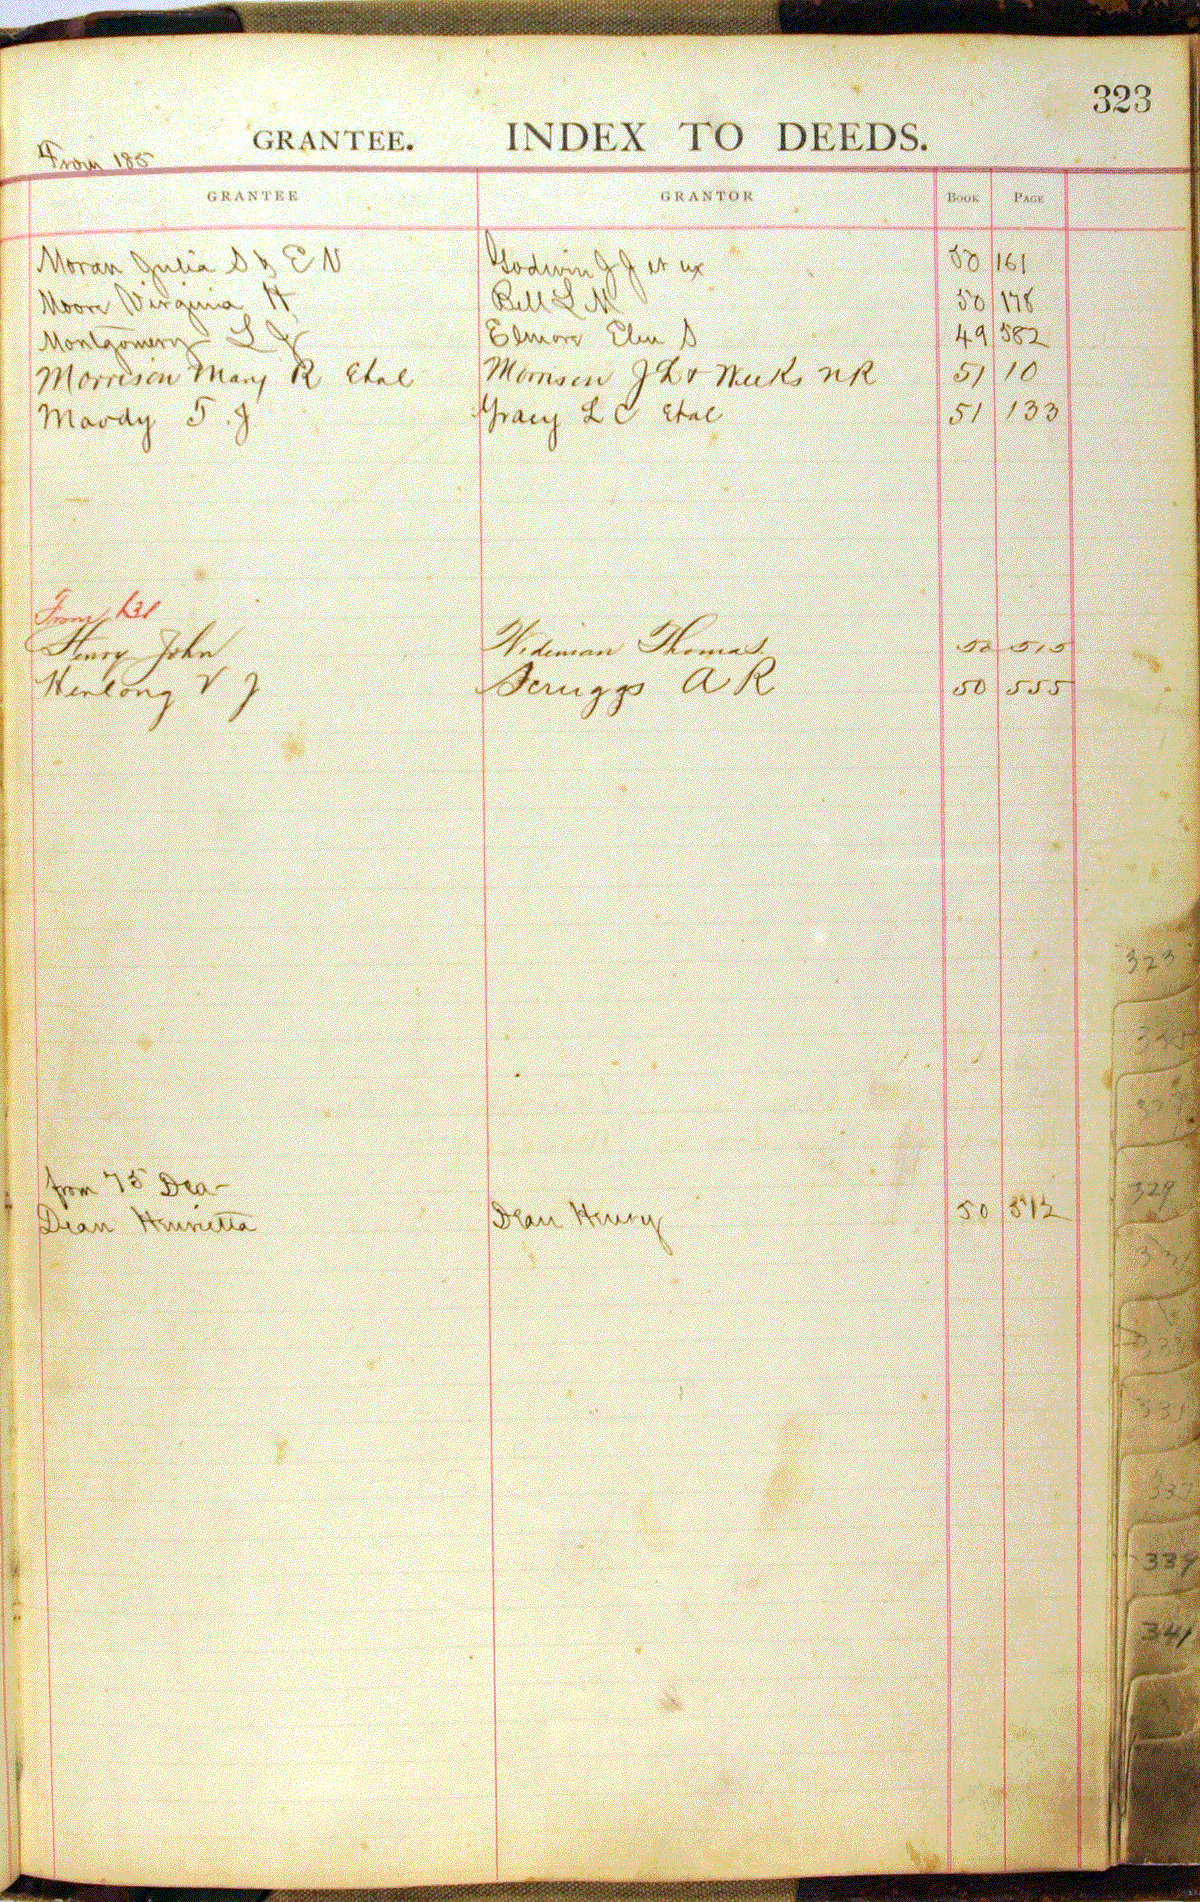 323
GRANTEE. INDEX TO DEEDS.
From 185
GRANTEE GRANTOR Book Page
Moran Julia S & E N Godwin J J et ux 50 161
Moore Virginia H Bell L M 50 178
Montgomery L J Elmore S 49 582
Morrison Mary R Etal Morrison J L & Weeks N R 51 10
Moody T. J Gracy L C Etal 51 133
From 131
Henry John Wideman Thomas 52 515
V J Scruggs A R 50 555
from 75 Dea-
Dean Henrietta Dean Henry 50 512
323
329
339
341